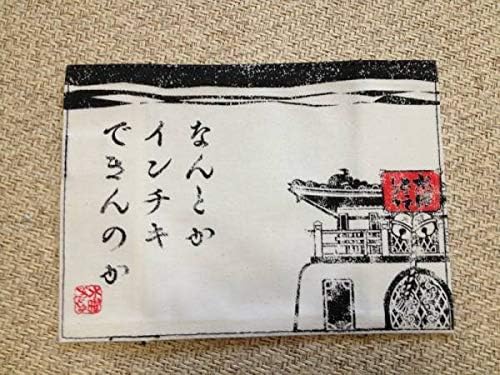 なんとか
インチキ
できんのか